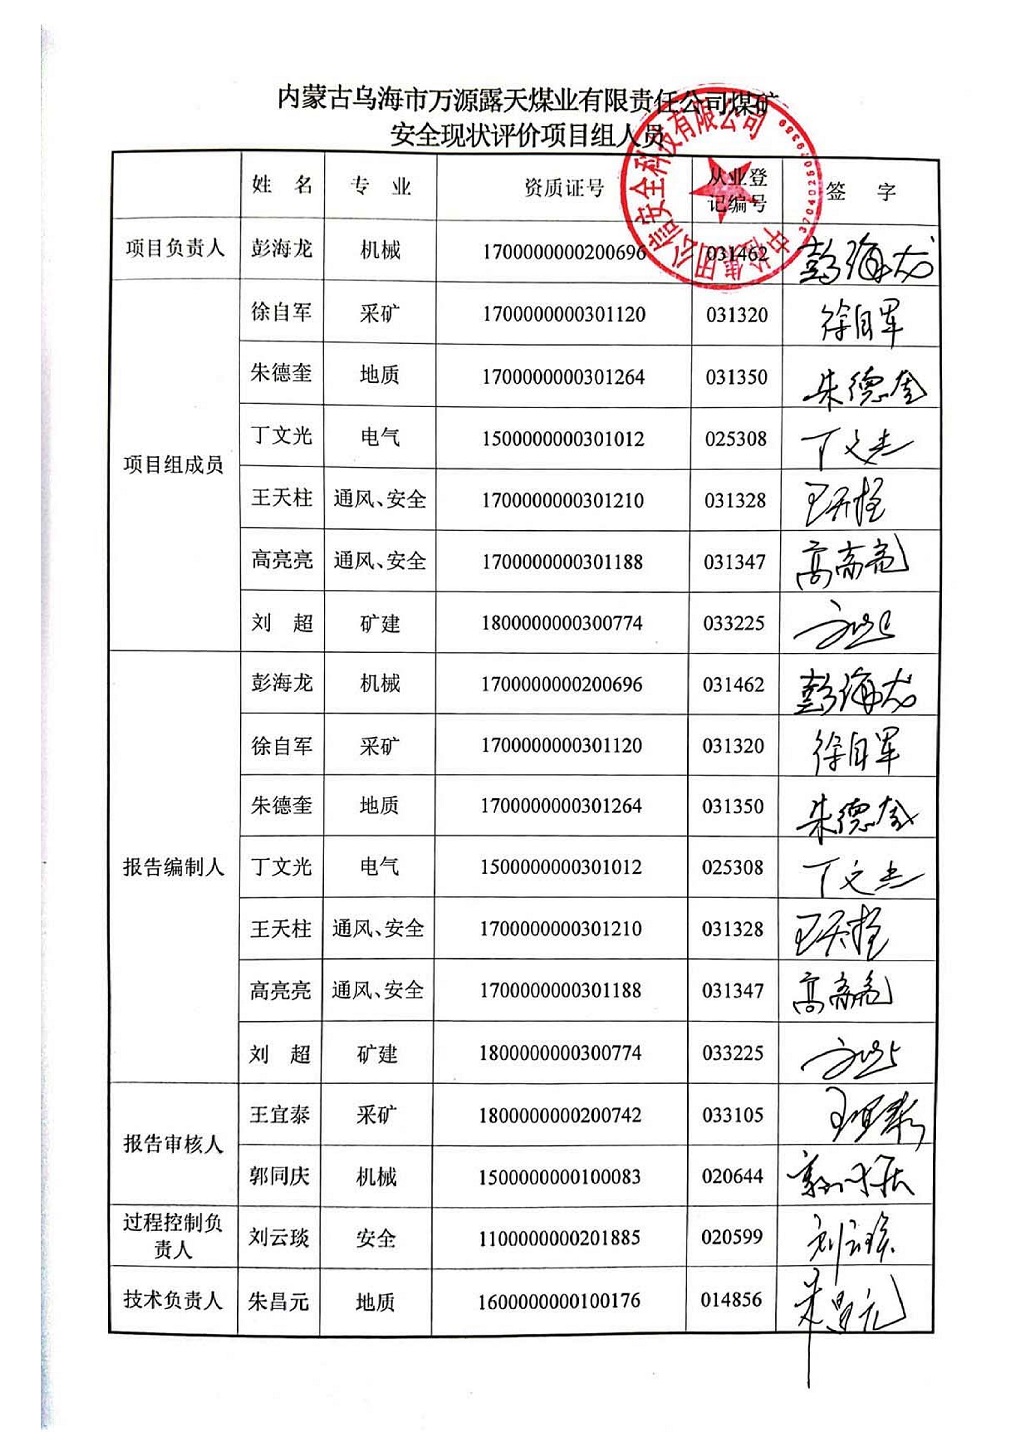 内蒙古乌海市万源露天煤业有限责任公司煤矿
安全现状评价项目组人员
姓 名 专 业 资质证号 从业登记编号 签 字
项目负责人 彭海龙 机械 1700000000200696 031462 彭海龙
项目组成员 徐自军 采矿 1700000000301120 031320 徐自军
朱德奎 地质 1700000000301264 031350 朱德奎
丁文光 电气 1500000000301012 025308 丁文光
王天柱 通风、安全 1700000000301210 031328 王天柱
高亮亮 通风、安全 1700000000301188 031347 高亮亮
刘 超 矿建 1800000000300774 033225 刘超
报告编制人 彭海龙 机械 1700000000200696 031462 彭海龙
徐自军 采矿 1700000000301120 031320 徐自军
朱德奎 地质 1700000000301264 031350 朱德奎
丁文光 电气 1500000000301012 025308 丁文光
王天柱 通风、安全 1700000000301210 031328 王天柱
高亮亮 通风、安全 1700000000301188 031347 高亮亮
刘 超 矿建 1800000000300774 033225 刘超
报告审核人 王宜泰 采矿 1800000000200742 033105 王宜泰
郭同庆 机械 1500000000100083 020644 郭同庆
过程控制负责人 刘云琰 安全 1100000000201885 020599 刘云琰
技术负责人 朱昌元 地质 1600000000100176 014856 朱昌元